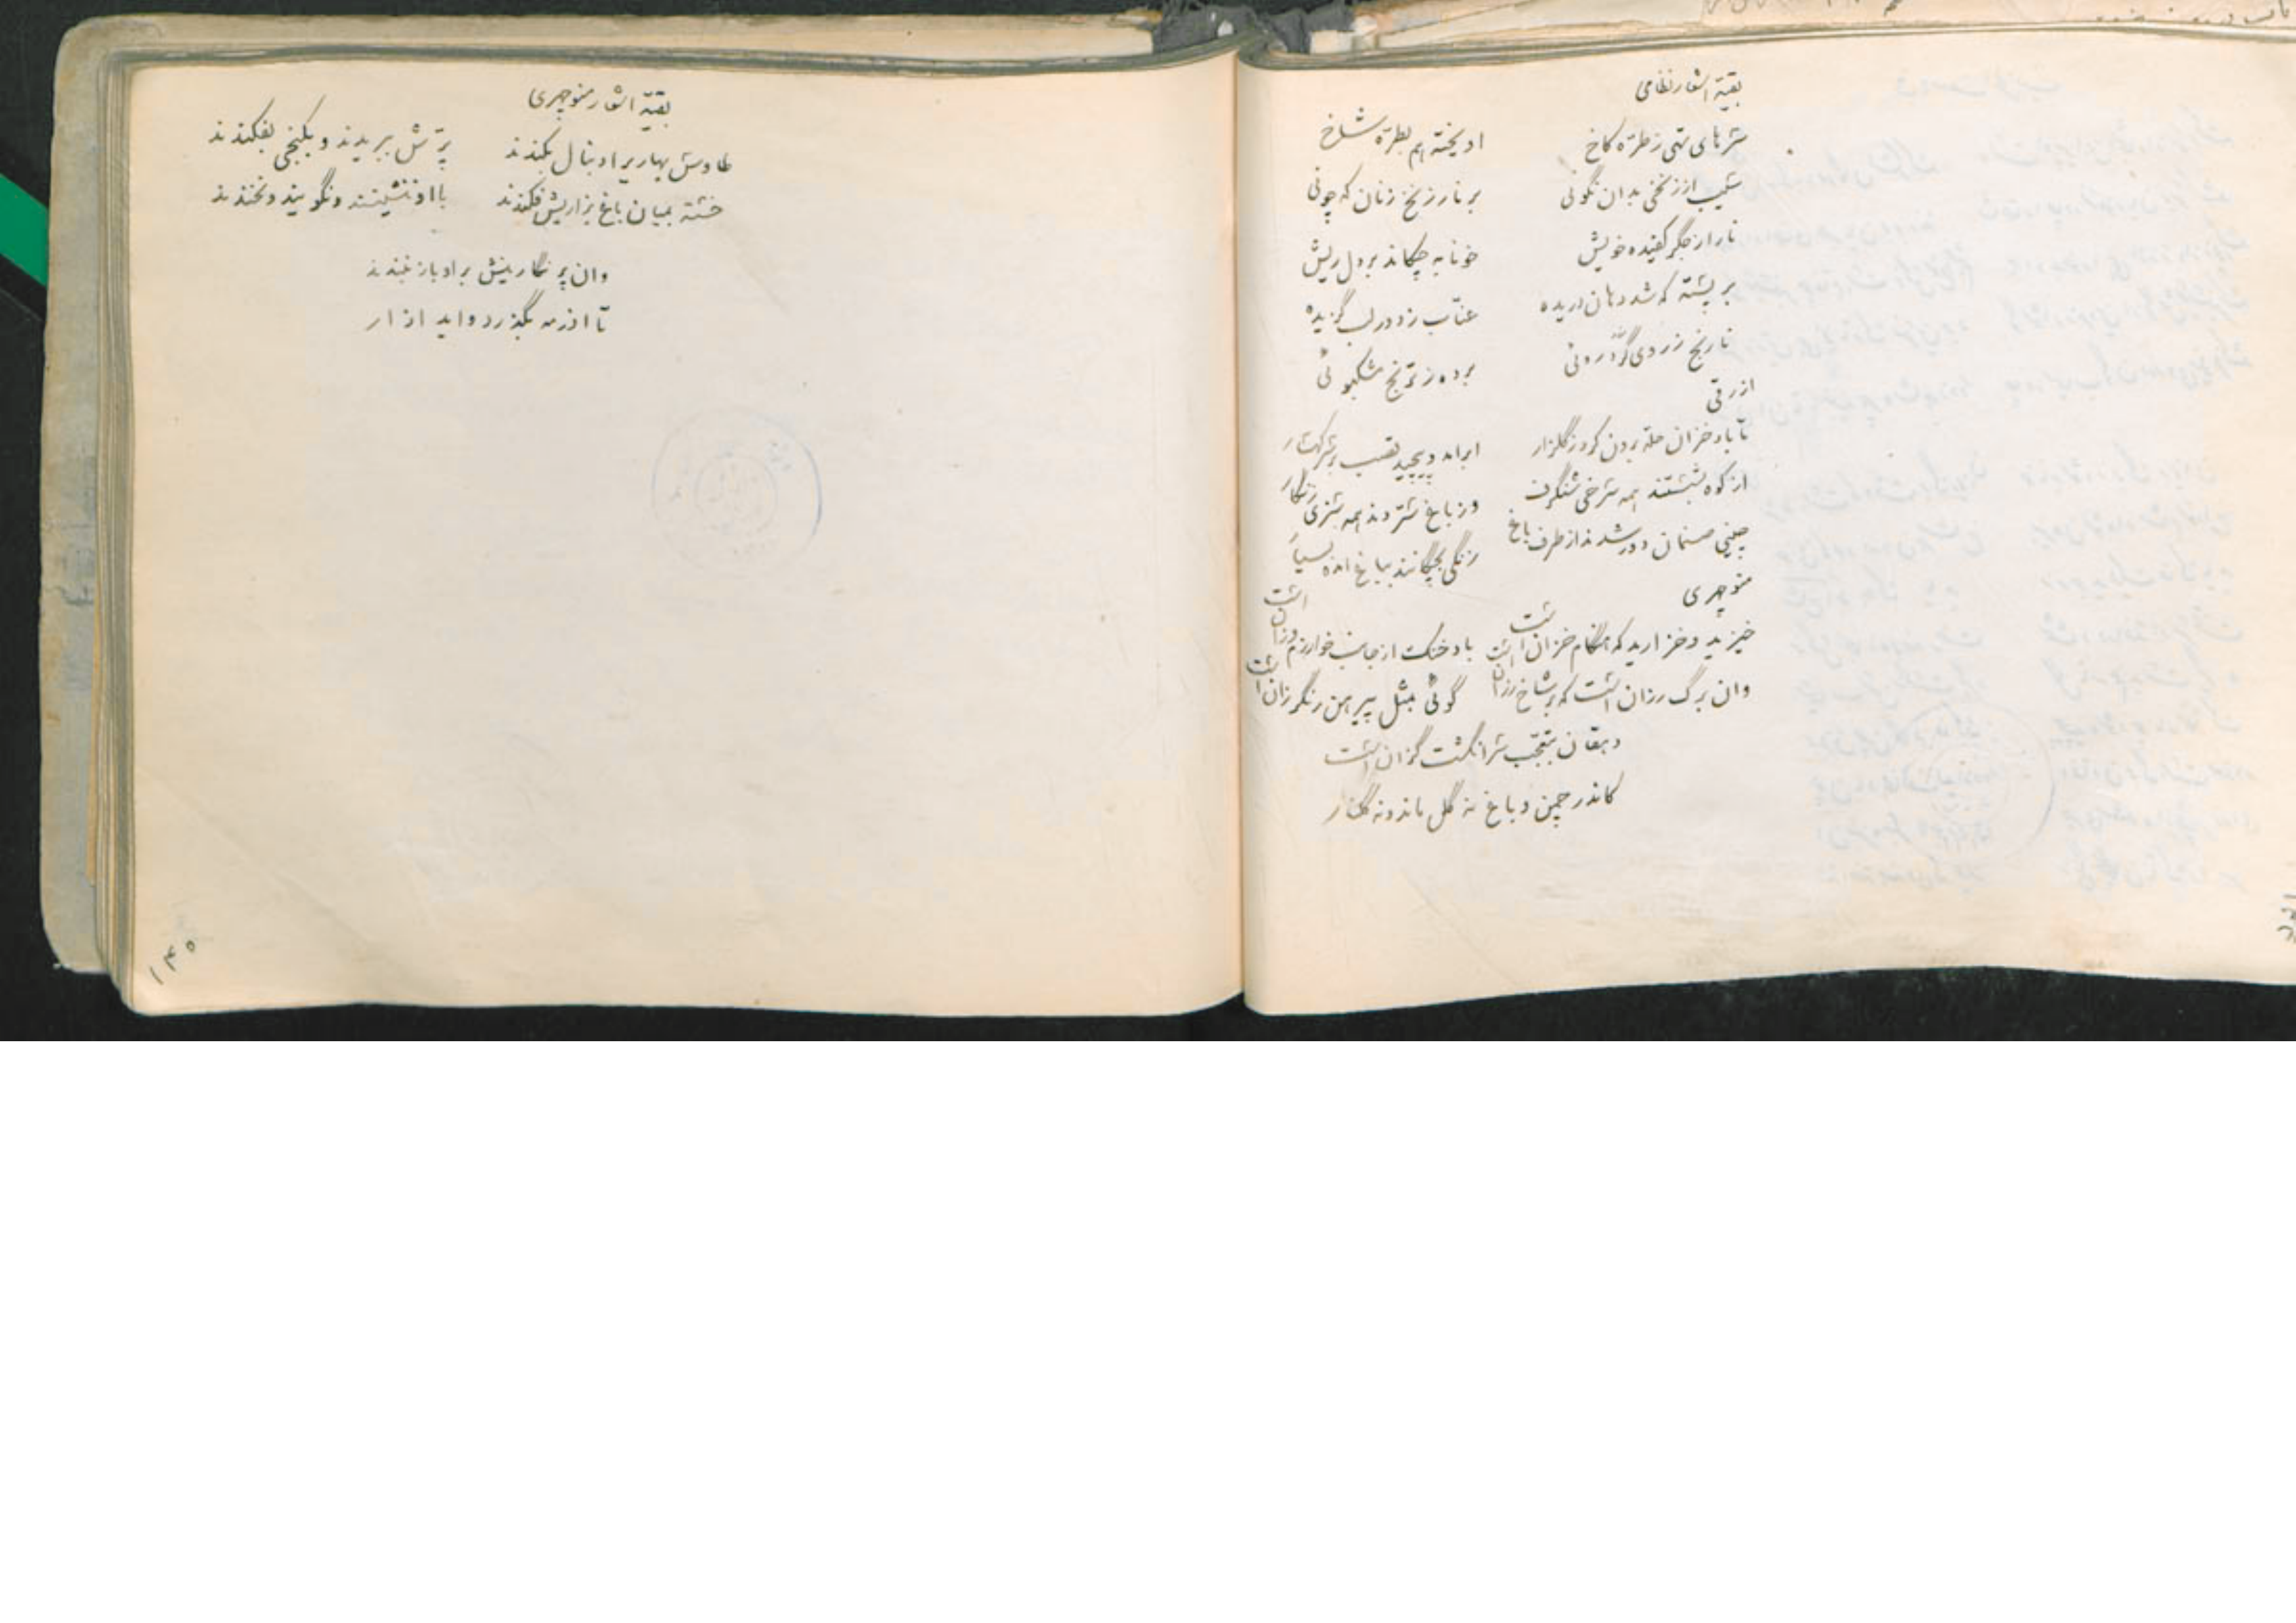 بقیّه اشعار نظامی
سرهای تهی ز طرّه کاخ اویخته هم بطرّه شاخ
سیب از زنخی بدان نگونی بر نار زنخ زنان که چونی
نار از جگر کفیده خویش خونابه چکاند بر دل ریش
بر پسته که شد دهان دریده عنّاب ز دور لب گزیده
نارنج ز روی برده ز ترنج مشکبوئی
ازرقی
تا باد خزان حلّه برون کرد ز گلزار ابر امد و پیچید قصب بر سر کهسار
از کوه بشستند همه سرخی شنگرف وز باغ ستردند همه سبزی زنگار
چینی صنمان دور شدند از طرف باغ زنگی بچگانند بباغ امده بسیار
منوچهری
خیزید و خز ارید که هنگام خزان است باد خنک از جانب خوارزم وزان است
وان برگ رزان است که بر شاخ رزان است گوئی بمثل پیرهن رنگرزان است
دهقان بتعجّب سر انگشت گزان است
کاندر چمن و باغ نه گل ماند و نه گلنار
بقیّه اشعار منوچهری
طاوس بهاریرا دنبال بکندند پرّش ببریدند و بکنجی بفکندند
خسته بمیان باغ بزاریش فکندند با او ننشینند و نگویند و نخندند
وان پر نگارینش بر او باز نبندند
تا اذرمه بگذرد و اید اذار
۱۴۵